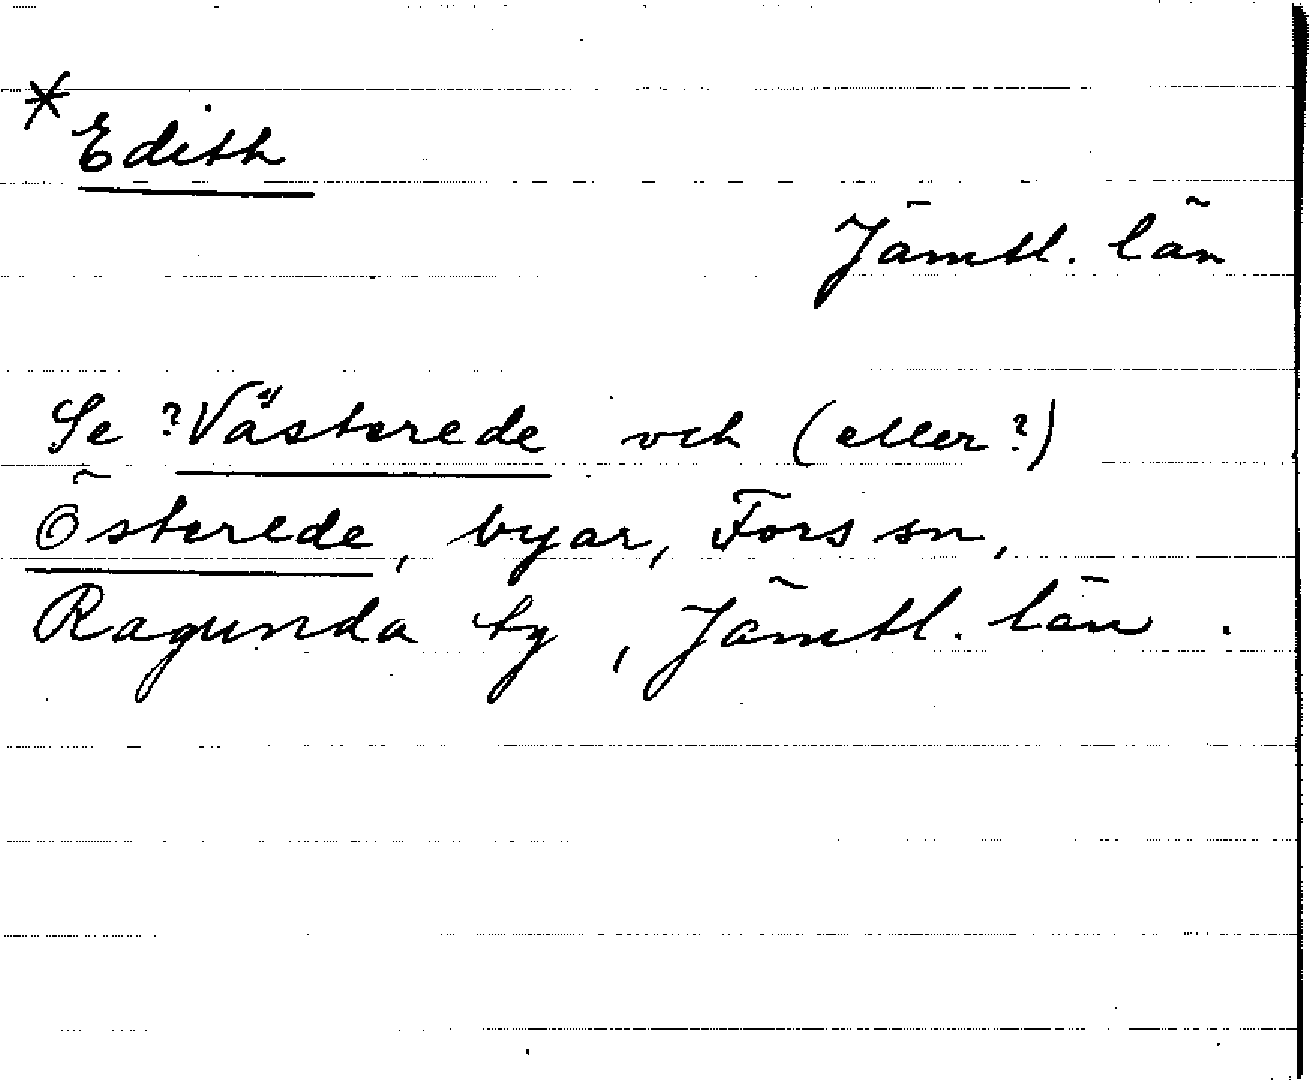 *Edith
Jämtl. län
Se ?Västerede och (eller?)
Österede, byar, Fors sn,
Ragunda tg, Jämtl. län.